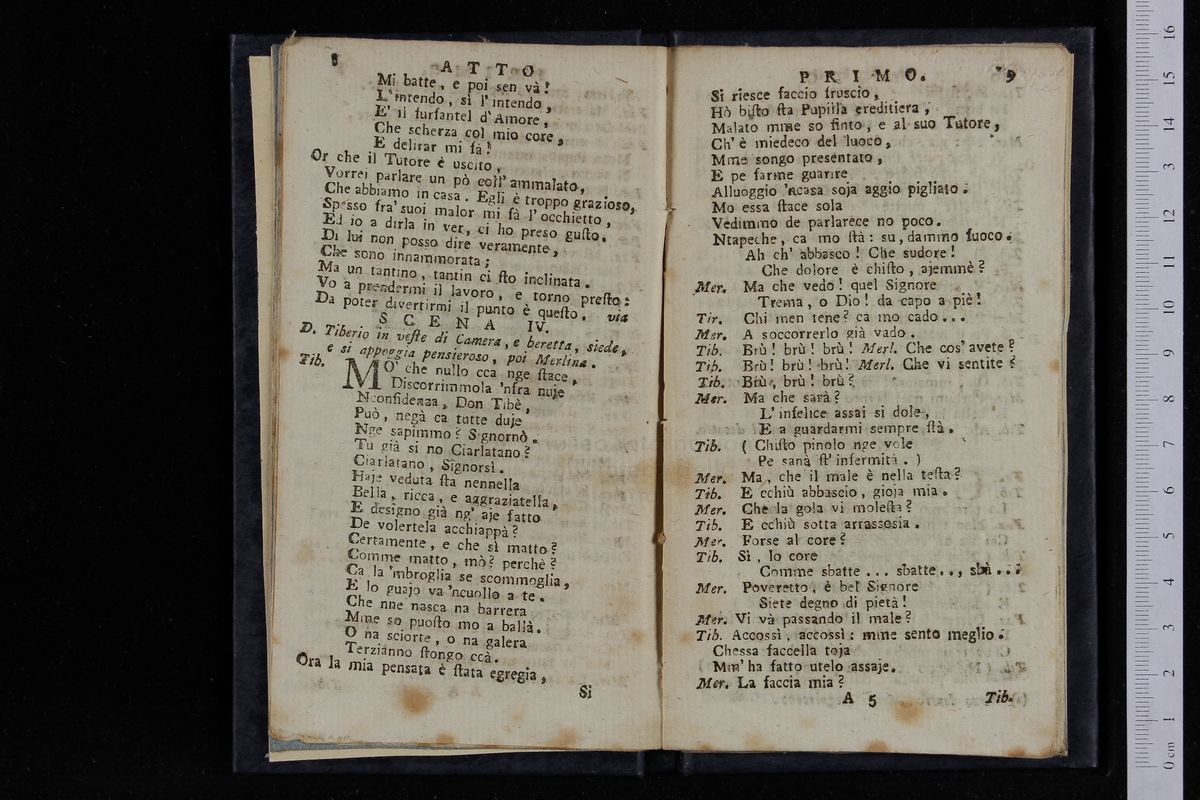 8
ATTO
Mi batte, e poi sen và!
L'intendo, sì l'intendo,
E' il furfantel d'Amore,
Che scherza col mio core,
E delirar mi fà!
Or che il Tutore è uscito,
Vorrei parlare un pò coll'ammalato,
Che abbiamo in casa. Egli è troppo grazioso,
Spesso fra' suoi malor mi fà l'occhietto,
Ed io a dirla in ver, ci ho preso gusto.
Di lui non posso dire veramente,
Che sono innammorata;
Ma un tantino, tantin ci sto inclinata.
Vo a prendermi il lavoro, e torno presto:
Da poter divertirmi il punto è questo. via
SCENA IV.
D. Tiberio in veste di Camera, e beretta, siede,
e si appoggia pensieroso, poi Merlina.
Tib. MO' che nullo cca nge stace,
Discorrimmola 'nfra nuje
Nconfidenza, Don Tibè,
Può, negà ca tutte duje
Nge sapimmo? Signornò.
Tu già si no Ciarlatano?
Ciarlatano, Signorsì.
Haje veduta sta nennella
Bella, ricca, e aggraziatella,
E designo già ng' aje fatto
De volertela acchiappà?
Certamente, e che sì matto?
Comme matto, mò? perchè?
Ca la 'mbroglia se scommoglia,
E lo guajo va 'ncuollo a te.
Che nne nasca na barrera
Mme so puosto mo a ballà.
O na sciorte, o na galera
Terzianno stongo ccà.
Ora la mia pensata è stata egregia,
Si
PRIMO.
9
Si riesce faccio fruscio,
Hò bisto sta Pupilla ereditiera,
Malato mme so finto, e al suo Tutore,
Ch'è miedeco del luoco,
Mme songo presentato,
E pe farme guarire
Alluoggio 'ncasa soja aggio pigliato.
Mo essa stace sola
Vedimmo de parlarece no poco.
Ntapeche, ca mo stà: su, dammo fuoco.
Ah ch' abbasco! Che sudore!
Che dolore è chisto, ajemmè?
Mer. Ma che vedo! quel Signore
Trema, o Dio! da capo a piè!
Tir. Chi men tene? ca mo cado...
Mer. A soccorrerlo già vado.
Tib. Brù! brù! brù! Merl. Che cos' avete?
Tib. Brù! brù! brù! Merl. Che vi sentite?
Tib. Brù, brù! brù?
Mer. Ma che sarà?
L' infelice assai si dole,
E a guardarmi sempre stà.
Tib. ( Chisto pinolo nge vole
Pe sanà st' infermità. )
Mer. Ma, che il male è nella testa?
Tib. E cchiù abbascio, gioja mia.
Mer. Che la gola vi molesta?
Tib. E cchiù sotta arrassosia.
Mer. Forse al core?
Tib. Sì, lo core
Comme sbatte... sbatte.., sbà...
Mer. Poveretto, è bel Signore
Siete degno di pietà!
Mer. Vi và passando il male?
Tib. Accossì, accossì: mme sento meglio.
Chessa faccella toja
Mm' ha fatto utelo assaje.
Mer. La faccia mia?
A 5
Tib.
16
15
14
13
12
11
10
9
8
7
6
5
4
3
2
1
0 cm